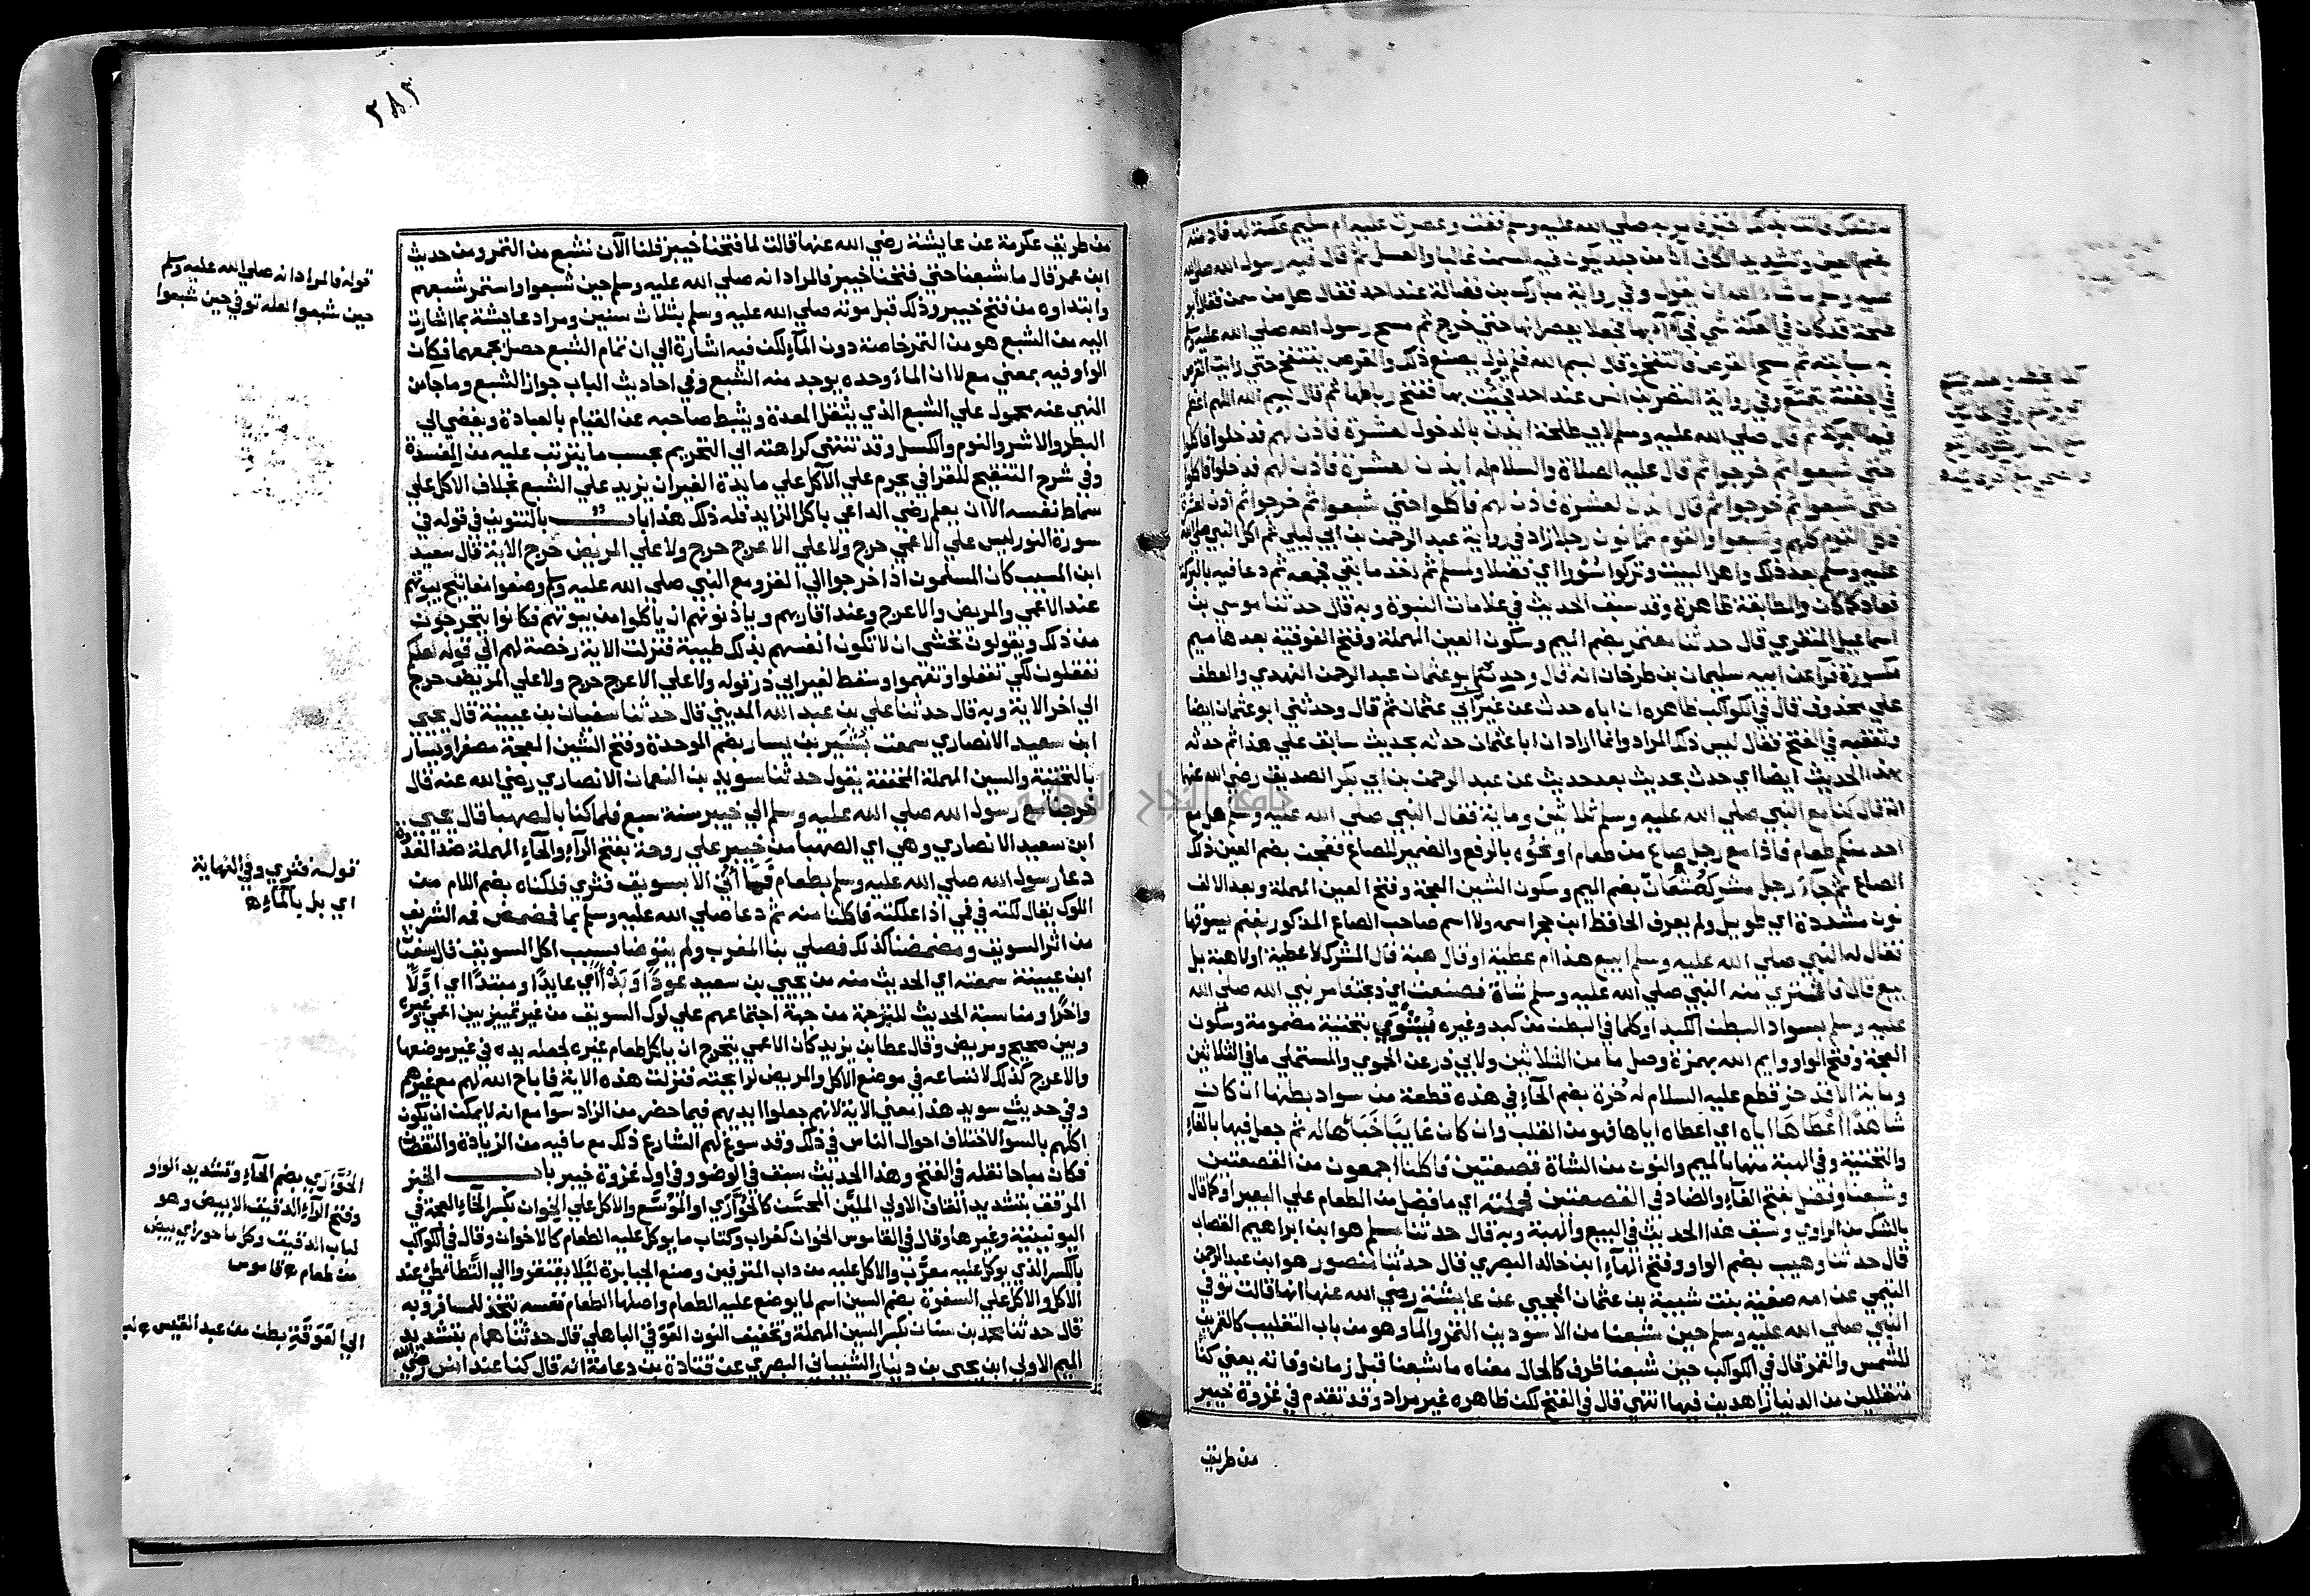 عليه وسلم ما شاء الله ان يقول وفي رواية مبارك بن فضالة عند احمد فقال هل من سمن فقال ابو
حتى شبعوا ثم خرجوا ثم قال عليه الصلاة والسلام له ايذن لعشرة فاذن لهم فدخلوا فاكلوا
حتى شبعوا ثم خرجوا ثم قال ايذن لعشرة فاذن لهم فاكلوا حتى شبعوا ثم خرجوا ثم اذن لعشرة
فاكل القوم كلهم وشبعوا والقوم ثمانون رجلا زاد في رواية عبد الرحمن بن ابي ليلي ثم اكل النبي صلى الله
عليه وسلم بعد ذلك واهل البيت وتركوا سؤرا اي فضلا ولمسلم ثم اخذ ما بقي فجمعه ثم دعا فيه بالبركة
فعاد كما كان والمطابقة ظاهرة وقد سبق الحديث في علامات النبوة وبه قال حدثنا موسي بن
اسماعيل المنقري قال حدثنا معتمر بضم الميم وسكون العين المهملة وفتح الفوقية بعدها ميم
مكسورة فراء عن ابيه سليمان بن طرخان انه قال وحدثني ابو عثمان عبد الرحمن النهدي والعطف
علي محذوف قال في الكواكب ظاهره ان اباه حدث عن غير ابي عثمان ثم قال وحدثني ابو عثمان ايضا
وتعقبه في الفتح فقال ليس ذلك المراد وانما اراد ان ابا عثمان حدثه بحديث سابق علي هذا ثم حدثه
بهذا الحديث ايضا اي حدث بحديث بعد حديث عن عبد الرحمن بن ابي بكر الصديق رضي الله عنهما
انه قال كنا مع النبي صلي الله عليه وسلم ثلاثين وماية فقال النبي صلي الله عليه وسلم هل مع
احد منكم طعام فاذا مع رجل صاع من طعام او نحوه بالرفع والضمير للصاع فعجن بضم العين ذلك
الصاع ثم جاء رجل مشرك مشعان بضم الميم وسكون الشين المعجمة وفتح العين المهملة وبعد الالف
نون مشددة اي طويل ولم يعرف الحافظ ابن حجر اسمه ولا اسم صاحب الصاع المذكور بغنم يسوقها
فقال له النبي صلي الله عليه وسلم ابيع هذا ام عطية او قال هبة قال المشرك لا عطية او لا هبة بل
بيع قال فاشتري منه النبي صلي الله عليه وسلم شاة فصنعت اي ذبحت فامر نبي الله صلي الله
عليه وسلم بسواد البطن الكبد او كلما في البطن من كبد وغيره يشوي بتحتية مضمومة وسكون
المعجمة وفتح الواو وايم الله بهمزة وصل ما من الثلاثين ولابي ذر عن الحموي والمستملي ما في الثلاثين
وماية الا قد حز قطع عليه السلام له حزة بضم الحاء في هذه قطعة من سواد بطنها ان كان
شاهدا اعطاها اياه اي اعطاه اياها فهو من القلب وان كان غايبا خباها له ثم جعل فيها بالفاء
والتحتية وفي الهبة منها بالميم والنون من الشاة قصعتين فاكلنا اجمعون من القصعتين
وشبعنا وفضل بفتح الفاء والضاد في القصعتين فحملته اي ما فضل من الطعام علي البعير او كما قال
بالشك من الراوي وسبق هذا الحديث في البيع والهبة وبه قال حدثنا مسلم هو ابن ابراهيم القصاب
قال حدثنا وهيب بضم الواو وفتح الهاء ابن خالد البصري قال حدثنا منصور هو ابن عبد الرحمن
التيمي عن امه صفية بنت شيبة بن عثمان الحجبي عن عايشة رضي الله عنها انها قالت توفي
النبي صلي الله عليه وسلم حين شبعنا من الاسودين التمر والماء وهو من باب التغليب كالقمرين
للشمس والقمر قال في الكواكب حين شبعنا ظرف كالحال معناه ما شبعنا قبل زمان وفاته يعني كنا
متقللين من الدنيا زاهدين فيها انتهي قال في الفتح لكن ظاهره غير مراد وقد تقدم في غزوة خيبر
من طريق
٣٨٢
من طريق عكرمة عن عايشة رضي الله عنها قالت لما فتحنا خيبر قلنا الآن نشبع من التمر ومن حديث
ابن عمر قال ما شبعنا حتي فتحنا خيبر فالمراد انه صلي الله عليه وسلم حين شبعوا واستمر شبعهم
وابتداوه من فتح خيبر وذلك قبل موته صلي الله عليه وسلم بثلاث سنين ومراد عايشة بما اشارت
اليه من الشبع هو من التمر خاصة دون الماء لكن فيه اشارة الي ان تمام الشبع حصل بجمعهما فكان
الواو فيه بمعني مع لا ان الماء وحده يوجد منه الشبع وفي احاديث الباب جواز الشبع وما جا من
النهي عنه محمول علي الشبع الذي يثقل المعدة ويثبط صاحبه عن القيام بالعبادة ويفضي الي
البطر والاشر والنوم والكسل وقد تنتهي كراهته الي التحريم بحسب ما يترتب عليه من المفسدة
وفي شرح التنقيح للقرافي يحرم علي الآكل علي مايدة الغير ان يزيد علي الشبع بخلاف الاكل علي
سماط نفسه الا ان يعلم رضي الداعي باكل الزايد فله ذلك هذا باب بالتنوين في قوله في
سورة النور ليس علي الاعمي حرج ولا علي الاعرج حرج ولا علي المريض حرج الاية قال سعيد
ابن المسيب كان المسلمون اذا خرجوا الي الغزو مع النبي صلي الله عليه وسلم وضعوا مفاتيح بيوتهم
عند الاعمي والمريض والاعرج وعند اقاربهم وياذنونهم ان ياكلوا من بيوتهم فكانوا يتحرجون
من ذلك ويقولون نخشي ان لا تكون انفسهم بذلك طيبة فنزلت الاية رخصة لهم الي قوله لعلكم
تعقلون لكي تعقلوا وتفهموا وسقط لغير ابي ذر قوله ولا علي الاعرج حرج ولا علي المريض حرج
الي اخر الاية وبه قال حدثنا علي بن عبد الله المديني قال حدثنا سفيان بن عيينة قال يحيي
ابن سعيد الانصاري سمعت بشير بن يسار بضم الموحدة وفتح الشين المعجمة مصغرا ويسار
بالتحتية والسين المهملة المخففة يقول حدثنا سويد بن النعمان الانصاري رضي الله عنه قال
خرجنا مع رسول الله صلي الله عليه وسلم الي خيبر سنة سبع فلما كنا بالصهبا قال يحيي
ابن سعيد الانصاري وهي اي الصهبا من خيبر علي روحة بفتح الراء والحاء المهملة ضد الغدوة
دعا رسول الله صلي الله عليه وسلم بطعام فما اتي الا بسويق فثري فلكناه بضم اللام من
اللوك يقال لكته في فمي اذا علكته فاكلنا منه ثم دعا صلي الله عليه وسلم بما فمضمض فمه الشريف
من اثر السويق ومضمضنا كذلك فصلي بنا المغرب ولم يتوضا بسبب اكل السويق قال سفيان
ابن عيينة سمعته اي الحديث منه من يحيي بن سعيد عودا وبدأ اي عايدا ومبتدا اي اولا
واخرا ومناسبة الحديث للترجمة من جهة اجتماعهم علي لوك السويق من غير تمييز بين اعمي وغيره
وبين صحيح ومريض وقال عطا بن يزيد كان الاعمي يتحرج ان ياكل طعام غيره لجعله يده في غير موضعها
والاعرج كذلك لاتساعه في موضع الاكل والمريض لرايحته فنزلت هذه الاية فاباح الله لهم مع غيرهم
وفي حديث سويد هذا معني الاية لانهم جعلوا ايديهم فيما حضر من الزاد سوا مع انه لا يمكن ان يكون
اكلهم بالسوا لاختلاف احوال الناس في ذلك وقد سوغ لهم الشارع ذلك مع ما فيه من الزيادة والنقصان
فكان مباحا نقله في الفتح وهذا الحديث سبق في الوضو وفي اول غزوة خيبر باب الخبز
المرقق بتشديد القاف الاولي الملين المحسن كالحواري او الموسع والاكل علي الخوان بكسر الخاء المعجمة في
اليونينية وغيرها وقال في القاموس الخوان كغراب وكتاب ما يوكل عليه الطعام كالاخوان وقال في الكواكب
بالكسر الذي يوكل عليه معرب والاكل عليه من داب المترفين وصنع الجبابرة ليلا يفتقروا الي التطاطي عند
الاكل والاكل علي السفرة بضم السين اسم لما يوضع عليه الطعام واصلها الطعام نفسه يتخذ للمسافر وبه
قال حدثنا محمد بن سنان بكسر السين المهملة وتخفيف النون العوقي الباهلي قال حدثنا همام بتشديد
الميم الاولي ابن يحيي بن دينار الشيباني البصري عن قتادة بن دعامة انه قال كنا عند انس رضي الله
قوله فالمراد انه صلي الله عليه وسلم
حين شبعوا لعله توفي حين شبعوا
قوله فثري وفي النهاية
اي بل بالماء اه
الحواري بضم الحاء وتشديد الواو
وفتح الراء الدقيق الابيض وهو
لباب الدقيق وكل ما حور اي بيض
من طعام اه قاموس
الي العوقة بطن من عبد القيس اه لب
جامعة النجاح الوطنية